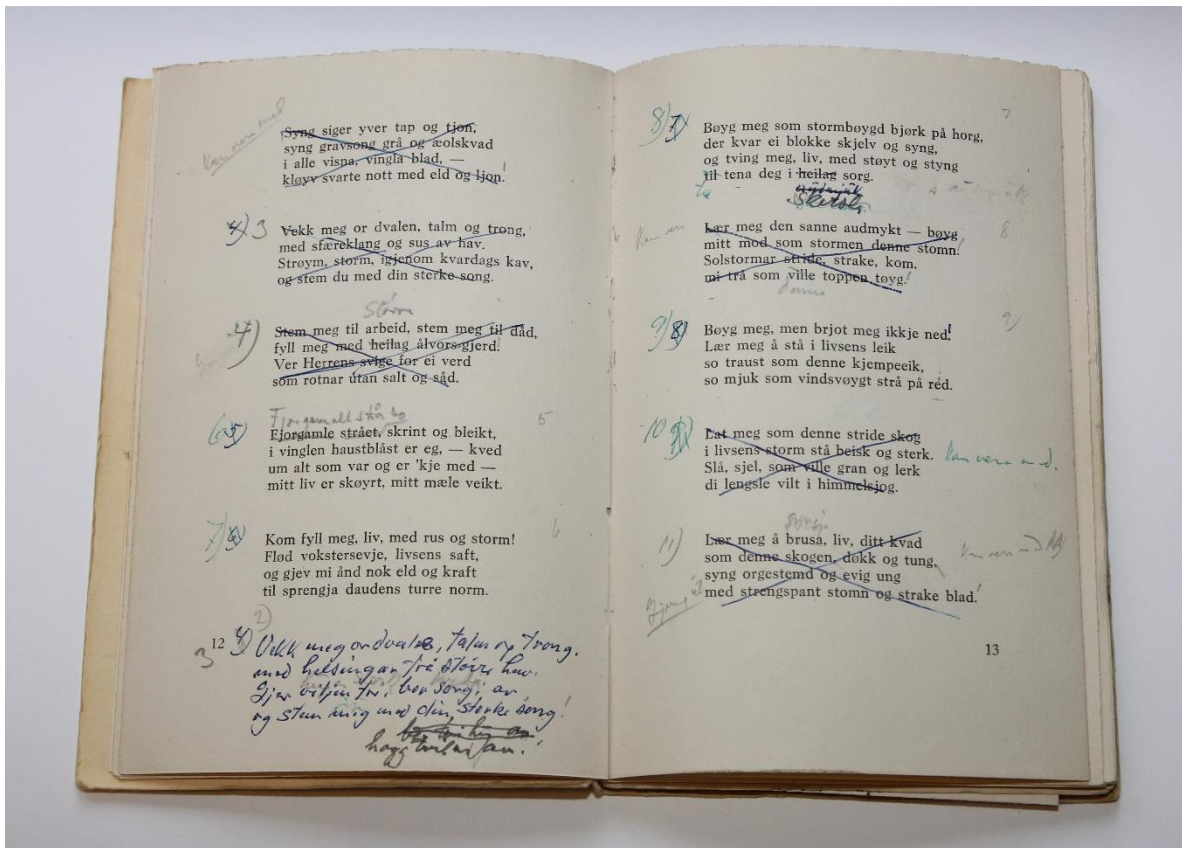 Kan vera med
Syng siger yver tap og tjon,
syng gravsong grå og æolskvad
i alle visna, vingla blad, —
kløyv svarte nott med eld og ljon!
4) 3
Vekk meg or dvalen, talm og trong,
med sfæreklang og sus av hav.
Strøym, storm, igjenom kvardags kav,
og stem du med din sterke song.
Større
4)
Stem meg til arbeid, stem meg til dåd,
fyll meg med heilag ålvors-gjerd!
Ver Herrens svige for ei verd
som rotnar utan salt og såd.
Fjorgamalt strå
6) 5) 5
Fjorgamle strået, skrint og bleikt,
i vinglen haustblåst er eg, — kved
um alt som var og er 'kje med —
mitt liv er skøyrt, mitt mæle veikt.
7) 6) 6
Kom fyll meg, liv, med rus og storm!
Flød vokstersevje, livsens saft,
og gjev mi ånd nok eld og kraft
til sprengja daudens turre norm.
2)
12
3 4) Vekk meg or dvale, talm og trong,
med helsingar frå større hav.
Gjer viljen fri, ber sorg, av
og stem meg med din sterke song!
hogg
8) 7) 7
Bøyg meg som stormbøygd bjørk på horg,
der kvar ei blokke skjelv og syng,
og tving meg, liv, med støyt og styng
til tena deg i heilag sorg.
audmjuk
Kan vera 8
Lær meg den sanne audmykt — bøyg
mitt mod som stormen denne stomn!
Solstormar stride, strake, kom,
mi trå som ville toppen tøyg!
denne
9) 8) 9)
Bøyg meg, men brjot meg ikkje ned!
Lær meg å stå i livsens leik
so traust som denne kjempeeik,
so mjuk som vindsvøygt strå på ré.
10 9)
Lat meg som denne stride skog
i livsens storm stå beisk og sterk.
Kan vera med.
Slå, sjel, som ville gran og lerk
di lengsle vilt i himmelsjog.
syngja
11)
Lær meg å brusa, liv, ditt kvad
som denne skogen, døkk og tung,
Kan vera med
syng orgestemd og evig ung
med strengspant stomn og strake blad!
13